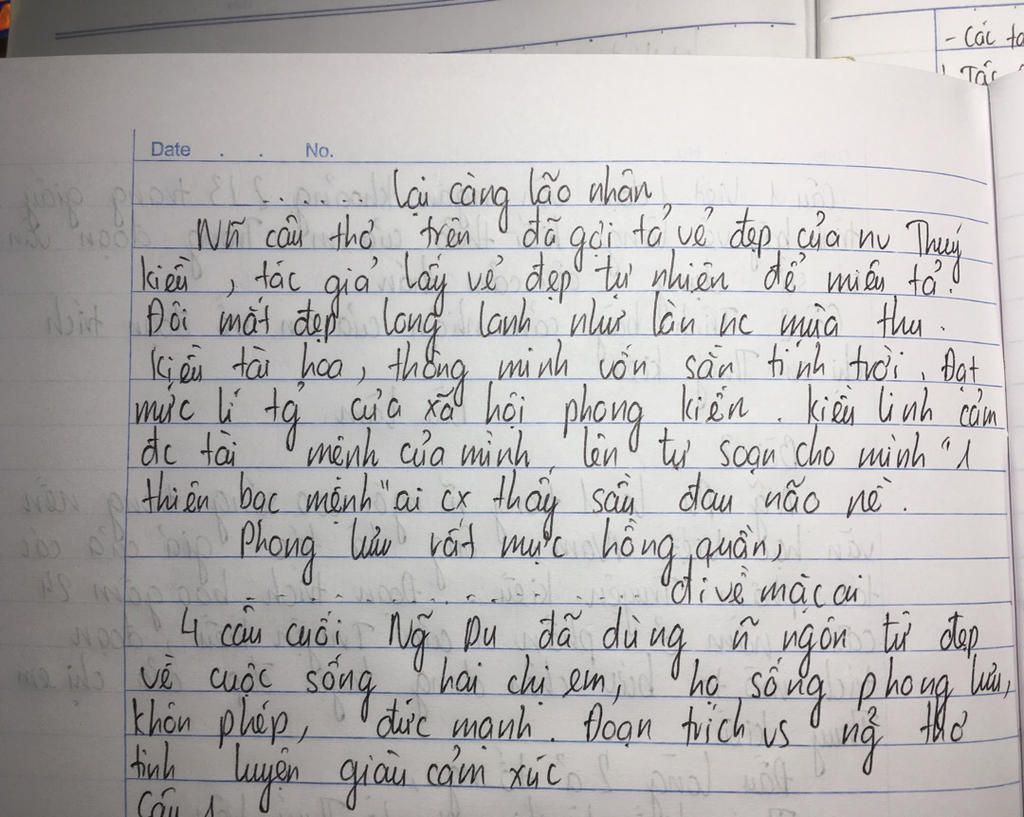 - Các
Tác
Date . . No.
. . . . . . . . lại càng lão nhân
Nh̃ câu thơ trên đã gợi tả vẻ đẹp của nv Thuý
kiều, tác giả lấy vẻ đẹp tự nhiên để miêu tả.
Đôi mắt đẹp long lanh như làn nc mùa thu.
Kiều tài hoa, thông minh vốn sẵn tính trời. Đạt
mức lí tg̉ của xã hội phong kiến. kiều linh cảm
đc tài mệnh của mình lên tự soạn cho mình "1
thiên bạc mệnh" ai cx thấy sầu đau não nề.
Phong lưu rất mực hồng quần,
. . . . . . . . . . đi về mặc ai
4 câu cuối Ng̃ Du đã dùng ñ ngôn từ đẹp
về cuộc sống hai chị em, họ sống phong lưu,
khôn phép, đức mạnh. Đoạn trích vs thơ
tinh luyện giàu cảm xúc
Câu 1